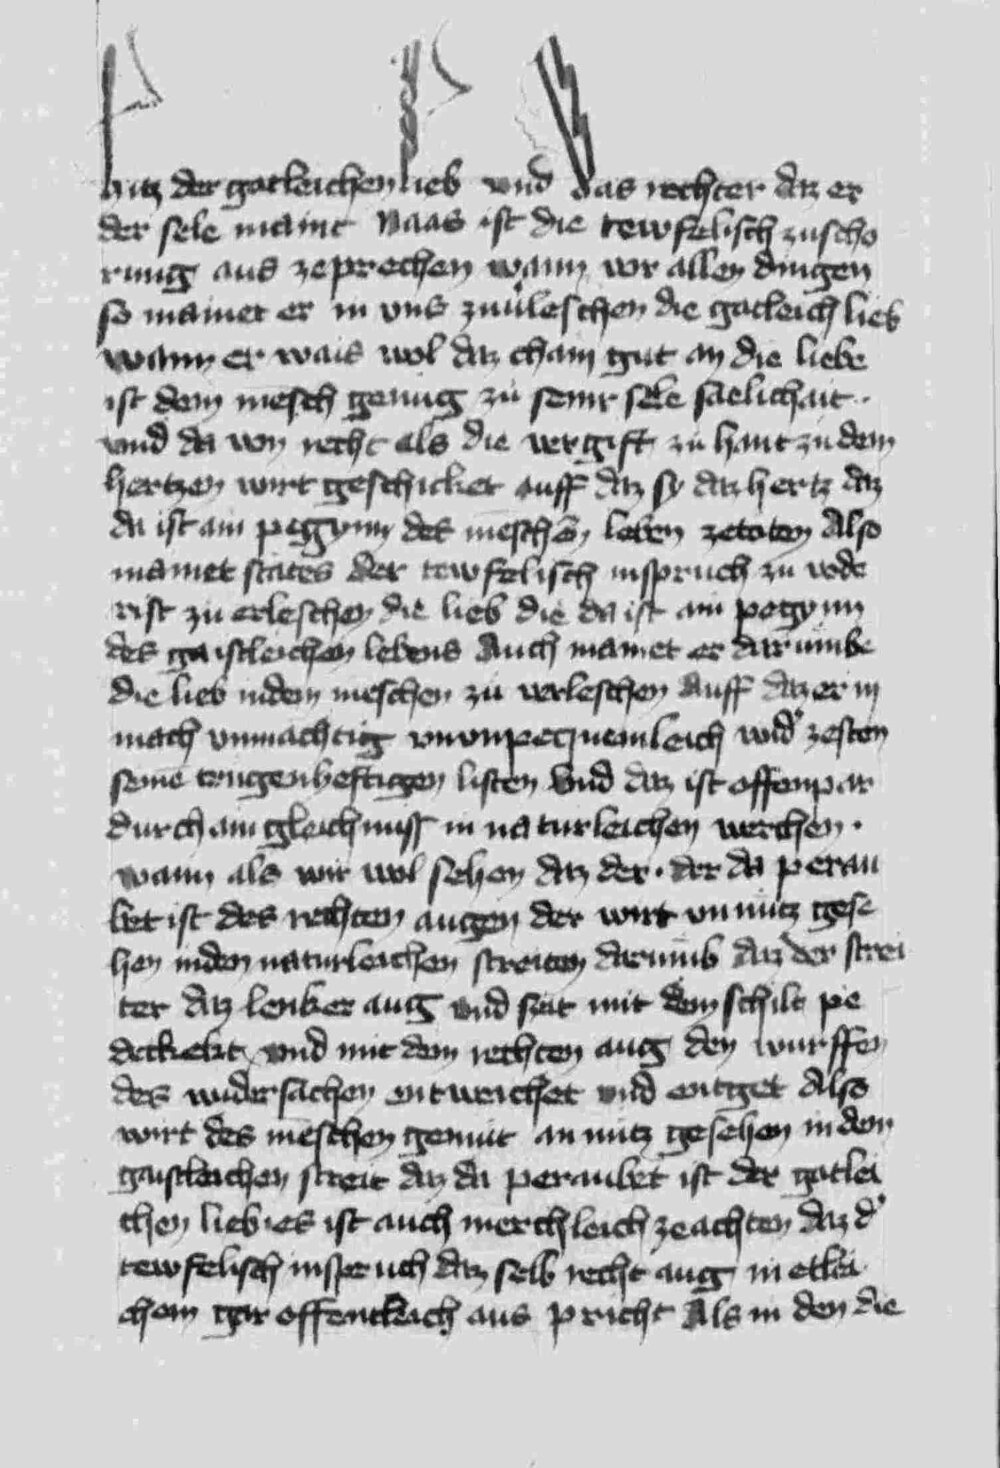 hitz der gotleichen lieb vnd das rechter daz er
der sele maint Naas ist die tewfelisch zuscho
rung aus zeprechen wann vor allen dingen
so mainet er in vns zuuleschen die gotleich lieb
wann er wais wol daz chain gut an die liebe
ist dem mesch genug zu seinr sele saelichait .
vnd da von recht als die vergift zu hant zu dem
hertzen wirt geschicket auff daz sy daz hertz daz
da ist ain pegynn des meschen leben zetoten Also
mainet states der tewfelisch inspruch zu vode
rist zu erleschen die lieb die da ist ain pegynn
des gaistleichen lebens Auch mainet er darumbe
die lieb indem meschen zu verleschen Auff daz er in
mach vnmachtig vnd vnpequemleich wid zesten
seine trugenheftigen listen Vnd daz ist offenpar
durch ain gleichnuss in naturleichen werchen .
wann als wir wol sehen daz der . der da perau
bet ist des rechten augen der wirt vnnutz gese
hen inden naturleichen streiten darumb daz der strei
ter daz lenker aug vnd seit mit dem schilt pe
decket vnd mit dem rechten aug den wurffen
des widersachen entweichet vnd entget Also
wirt des meschen gemut an nutz gesehen in dem
gaistleichen streit daz da peraubet ist der gotlei
chen lieb . es ist auch merchleich zeachten daz d
tewfelisch inspruch daz selb recht aug in etlei
chem gar offentleich aus pricht Als in den die